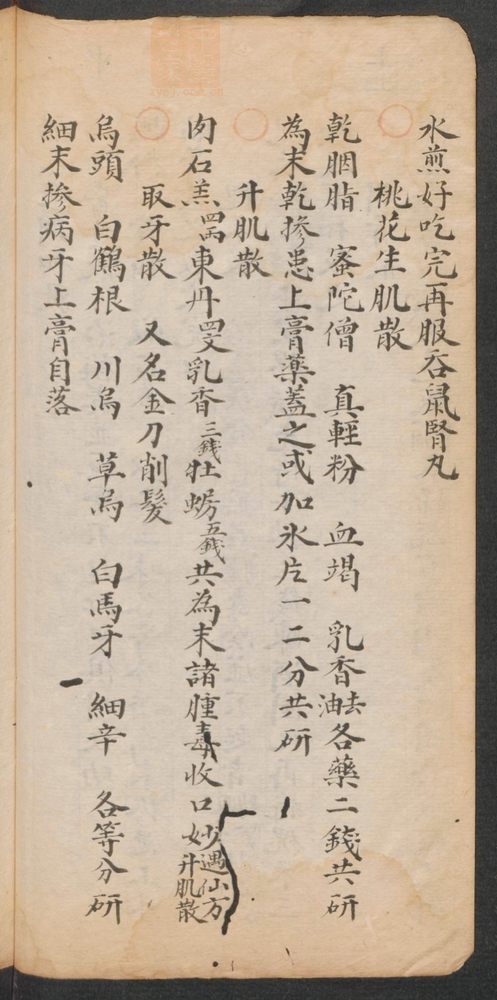 水煎好吃完再服吞鼠腎丸
桃花生肌散
乾胭脂 蜜陀僧 真輕粉 血竭 乳香去油各藥二錢共研
為末乾摻患上膏藥蓋之或加氷片一二分共研
升肌散
肉石羔四兩東丹四文乳香三錢牡蠣五錢共為末諸腫毒收口妙遇仙方升肌散
取牙散 又名金刀削髮
烏頭 白鶴根 川烏 草烏 白馬牙 細辛 各等分研
細末摻病牙上膏自落